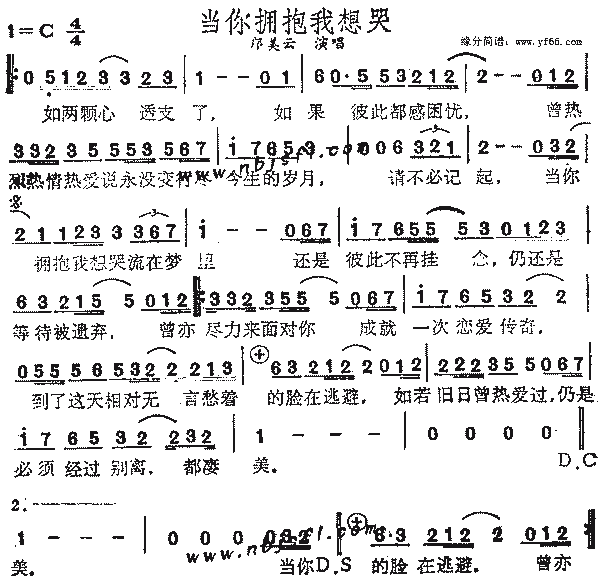 当你拥抱我想哭
1=C 4/4
邝美云 演唱
缘分简谱: www.yf66.com
0 5 1 2 3 3 2 3 | 1 - - 0 1 | 6 0· 5 5 3 2 1 2 | 2 - - 0 1 2
如两颗心 透支了, 如果 彼此都感困忧, 曾热
3 3 2 3 5 5 5 5 3 5 6 7 | i 7 6 5 3 · 3 | 0 0 6 3 2 1 | 2 - - 0 3 2
热情热爱说永没变 今生的岁月, 请不必记起, 当你
www.nbisfl.com
2 1 1 1 2 3 3 3 6 7 | i - - 0 6 7 | i 7 6 5 5 5 3 0 1 2 3
拥抱我想哭流在梦里 还是 彼此不再挂念, 仍还是
6 3 2 1 5 5 0 1 2 3 3 2 3 5 5 5 0 6 7 | i 7 6 5 3 2 2
等待被遗弃, 曾亦 尽力来面对你 成就 一次恋爱传奇,
0 5 5 5 6 5 3 2 2 2 1 3 6 3 2 1 2 2 0 1 2 | 2 2 2 3 5 5 0 6 7
到了这天相对无言愁着 的脸在逃避, 如若旧日曾热爱过,仍是
i 7 6 5 3 2 2 3 2 | 1 - - - | 0 0 0 0
必须经过别离, 都凄美. D.C
2.
1 - - - | 0 0 0 0 3 2 6 3 2 1 2 2 0 1 2
www.nbisfl.com
美. 当你D.S 的脸在逃避. 曾亦